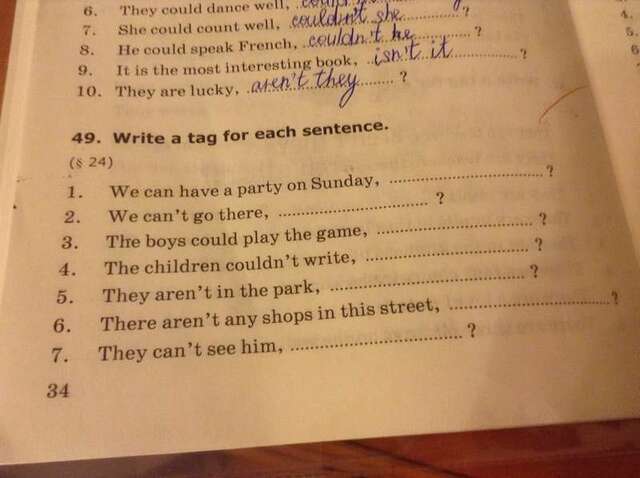 6. They could dance well,
7. She could count well, couldn't she ?
8. He could speak French, couldn't he ?
9. It is the most interesting book, isn't it ?
10. They are lucky, aren't they ?
49. Write a tag for each sentence.
(§ 24)
1. We can have a party on Sunday, ........................................ ?
2. We can't go there, ........................................ ?
3. The boys could play the game, ........................................ ?
4. The children couldn't write, ........................................ ?
5. They aren't in the park, ........................................ ?
6. There aren't any shops in this street, ........................................ ?
7. They can't see him, ........................................ ?
34
4.
5.
6